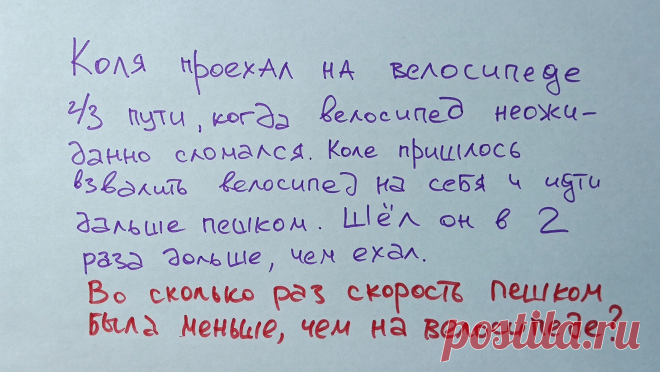 Коля проехал на велосипеде
2/3 пути, когда велосипед неожи-
данно сломался. Коле пришлось
взвалить велосипед на себя и идти
дальше пешком. Шёл он в 2
раза дольше, чем ехал.
Во сколько раз скорость пешком
была меньше, чем на велосипеде?
postila.ru